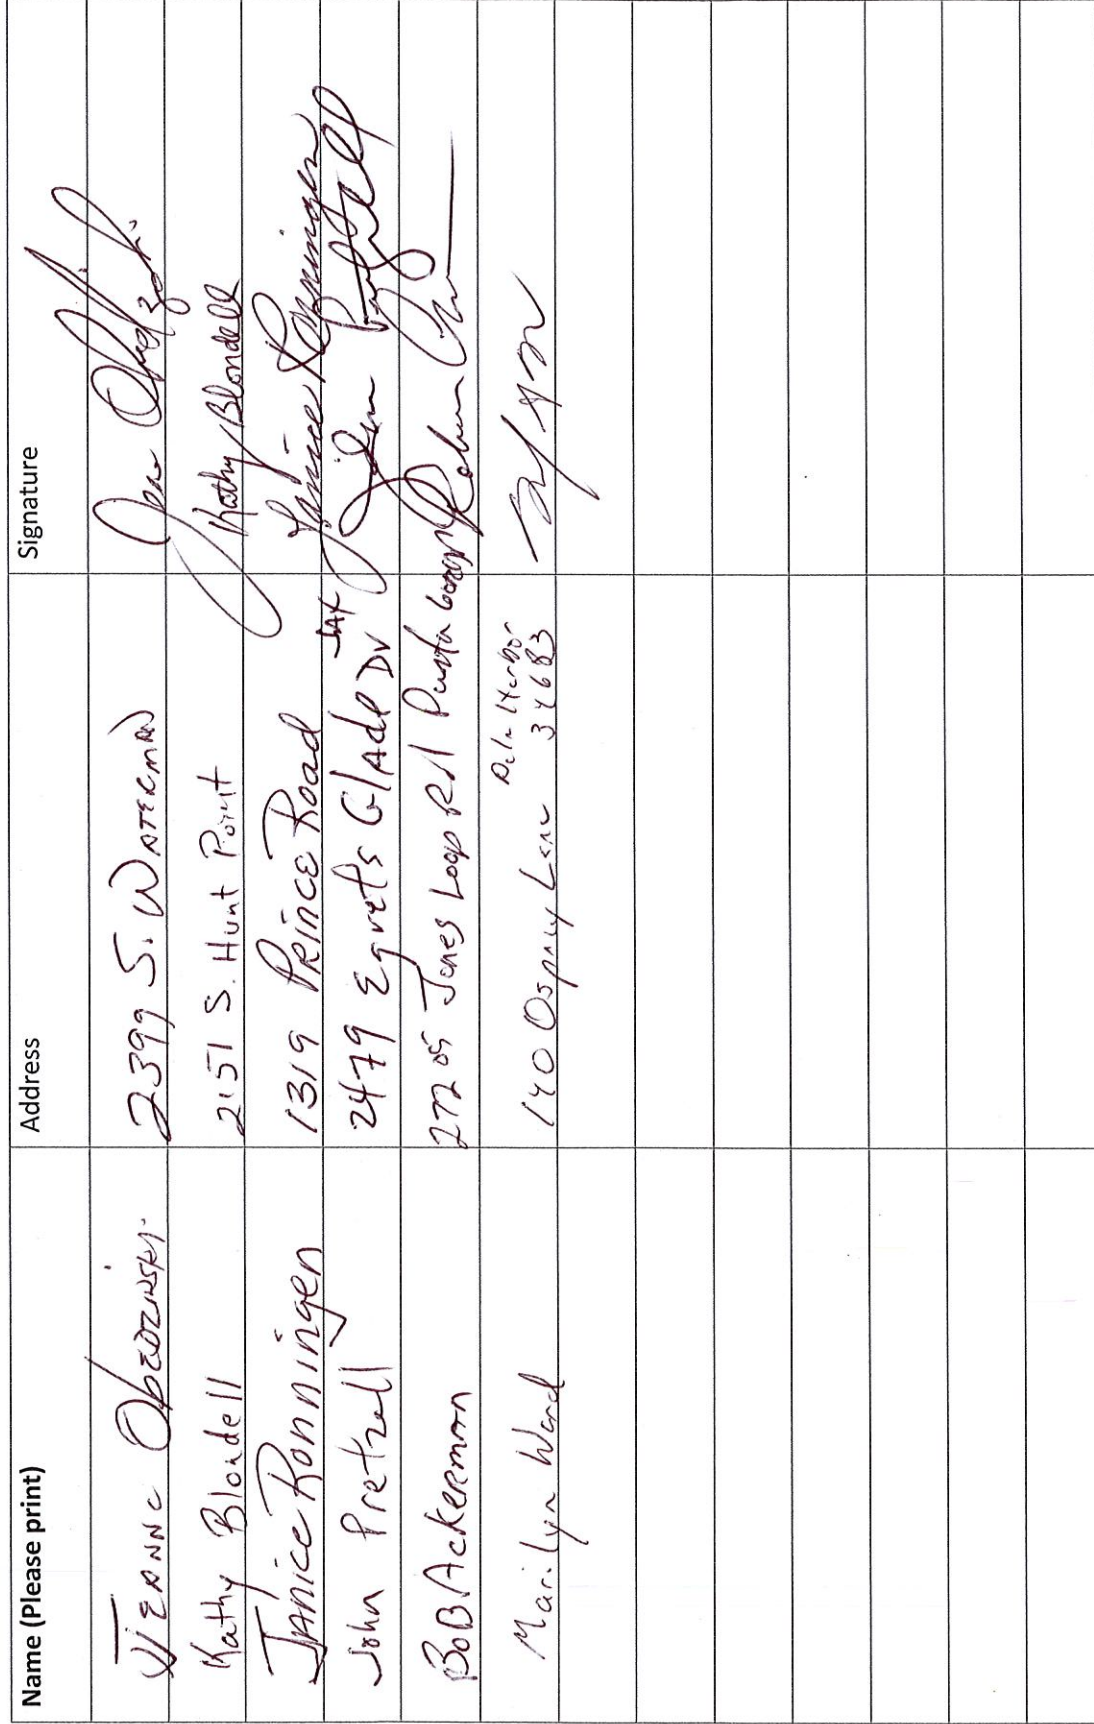 Name (Please print) Address Signature
JEANNE Obedzinski 2399 S. WATERMAN
Kathy Blondell 2151 S. Hunt Point Kathy Blondell
JANICE RONNINGEN 1319 PRINCE Road Janice Ronningen
John Pretzell 2479 Egrets GlAdE Dr JAX John Pretzell
BOB Ackerman 27205 Jones Loop Rd Punta
Marilyn Ward 140 Osprey Lane Palm Harbor 34683